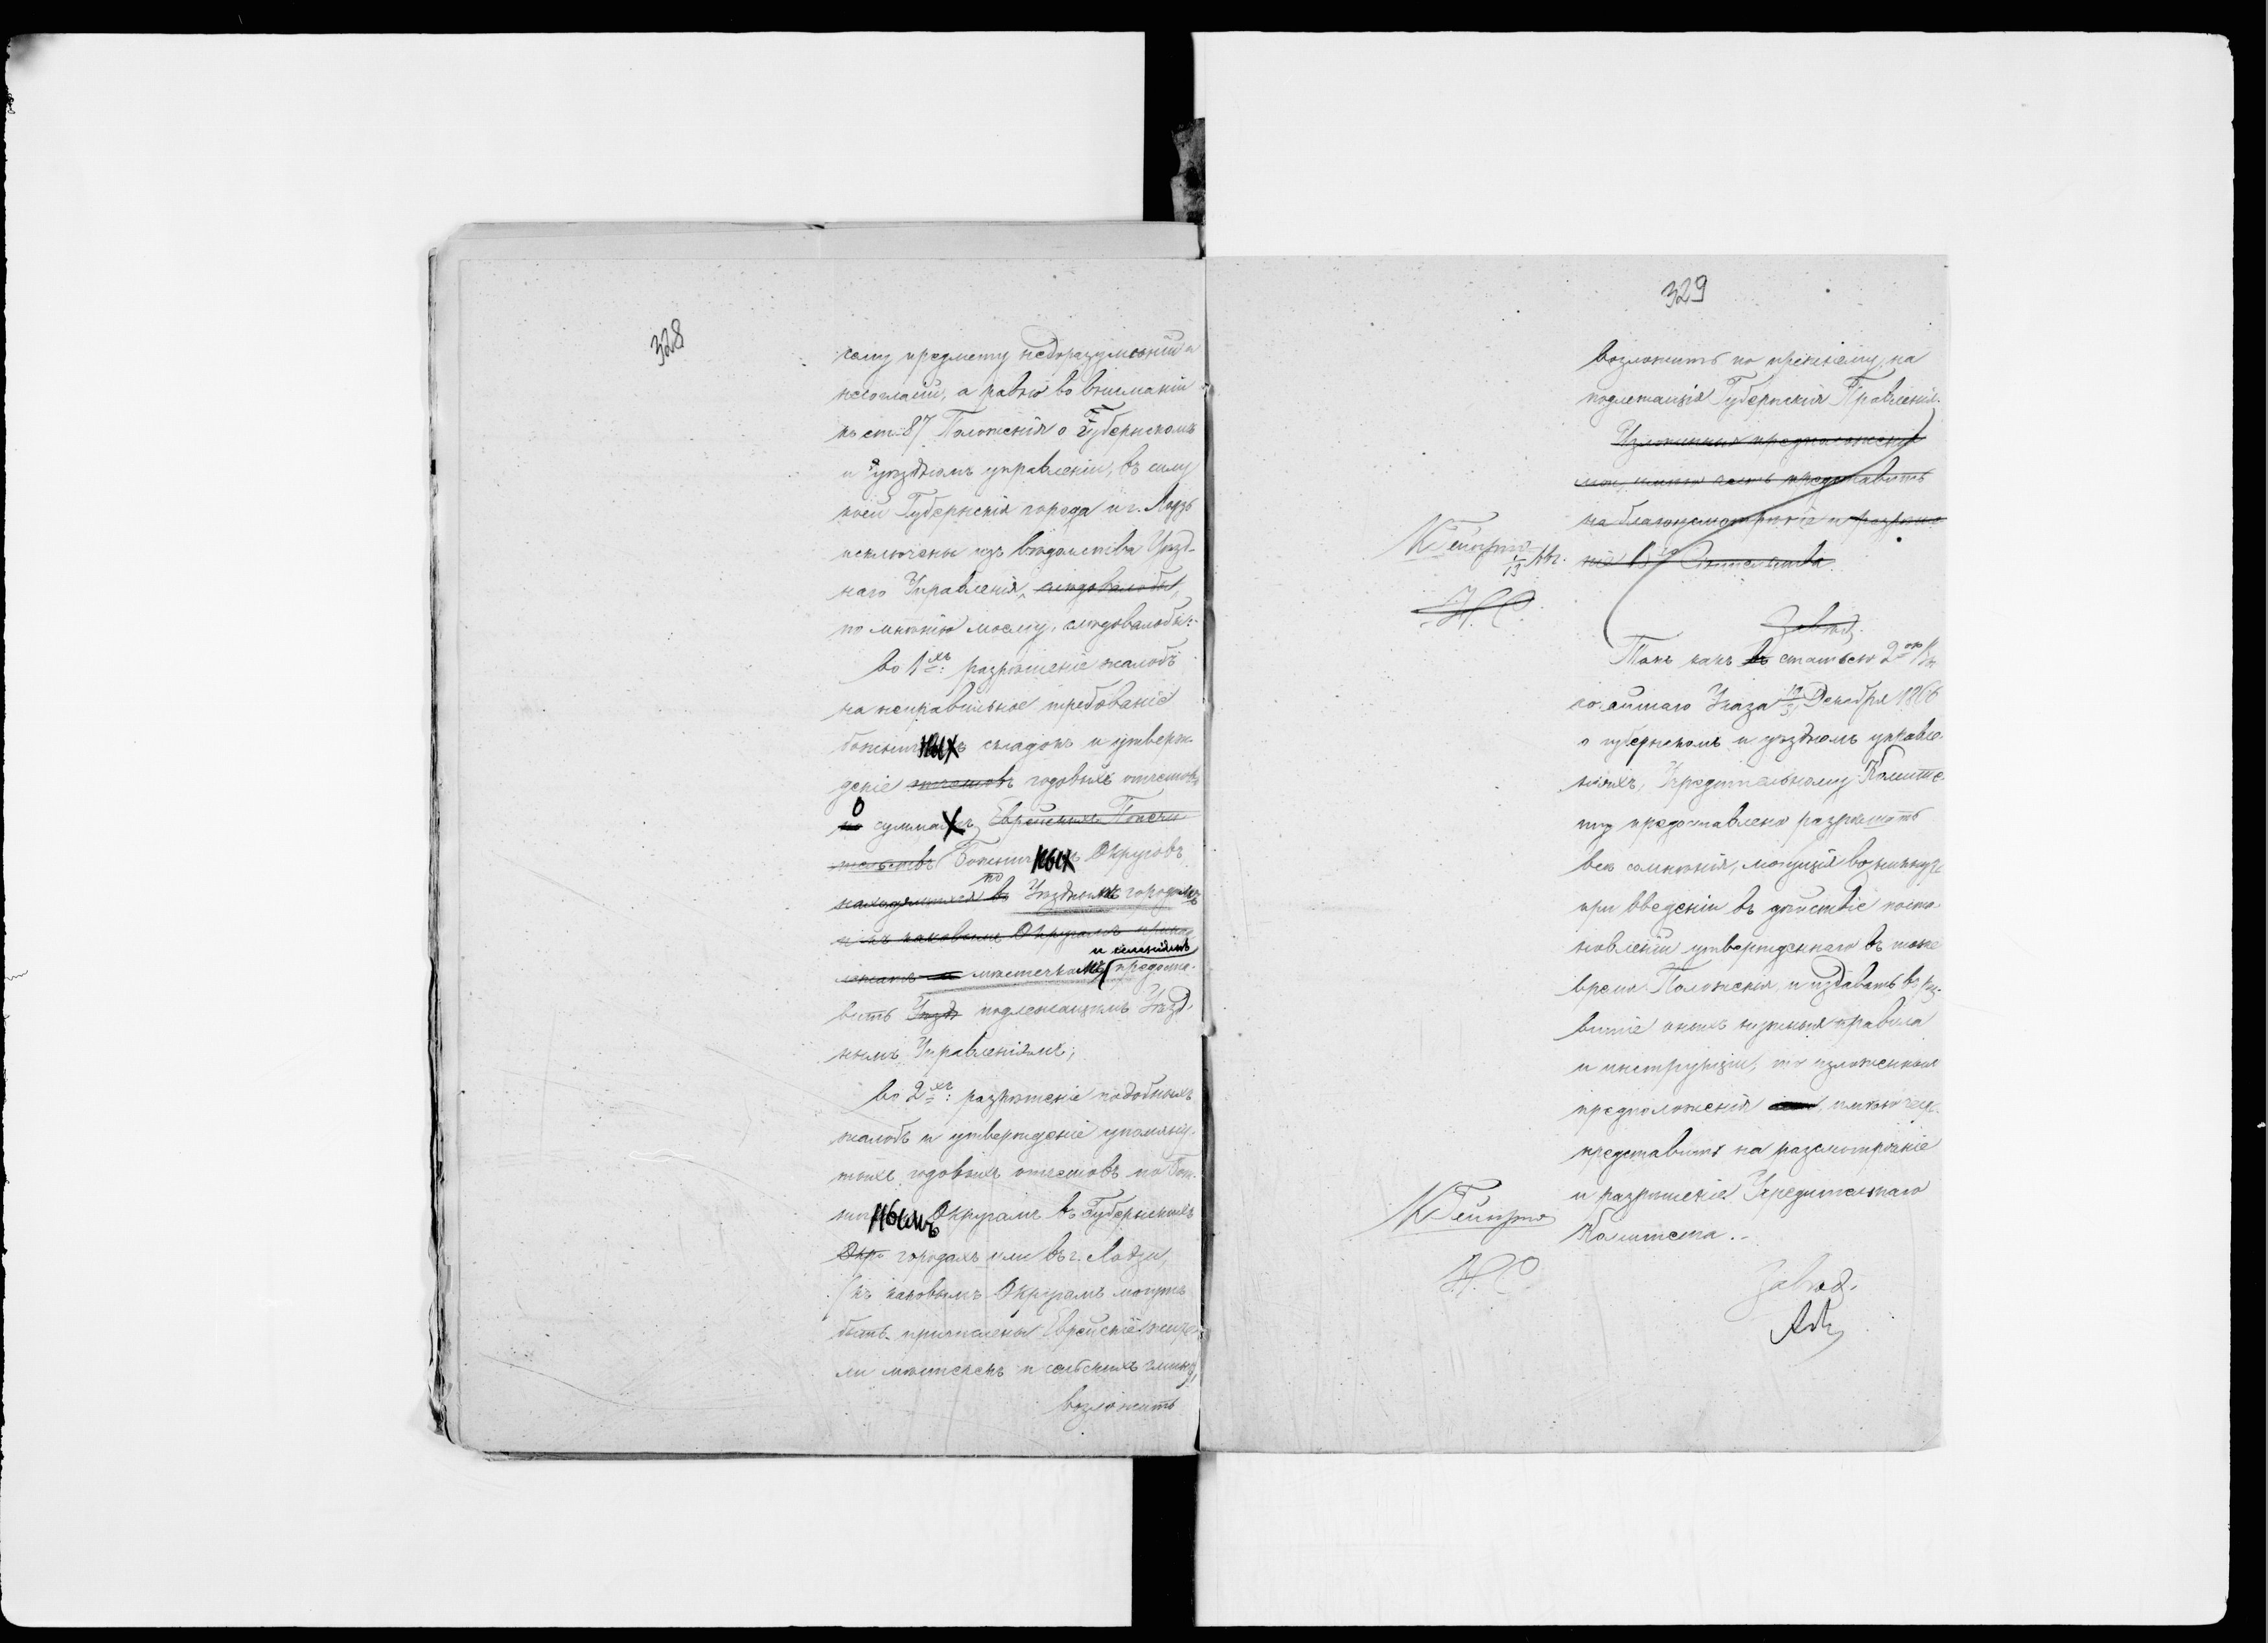 328
сему предмету недоразумений и
несогласій, а равно во вниманіи
къ ст. 87 Положенія о Губернскомъ
и уѣздномъ управленіи, въ силу
коей Губернскія города и г. Лодзь
исключены изъ вѣдомства Уѣзд-
наго Управленія, слѣдовало бы,
по мнѣнію моему, слѣдовало бы:
во 1хъ: разрѣшеніе жалобъ
на неправильное требованіе
божничныхъ складокъ и утверж-
деніе отчетовъ годовыхъ отчетовъ
о суммахъ Еврейскихъ Попечи
тельствъ Божничныхъ Округовъ
находящихся въ по Уѣзднымъ городамъ
и къ каковымъ Округамъ принад
лежатъ и мѣстечкамъ и селеніямъ предоста-
вить Уѣзд подлежащимъ Уѣзд-
нымъ Управленіямъ;
во 2хъ: разрѣшеніе подобныхъ
жалобъ и утвержденіе упомяну-
тыхъ годовыхъ отчетовъ по Бож-
ничнымъ Округамъ въ Губернскихъ
Окр городахъ или въ г. Лодзи,
(къ каковымъ Округамъ могутъ
быть причислены Еврейскіе жите-
ли мѣстечекъ и сельскихъ гминъ),
возложить
329
возложить по прежнему на
подлежащія Губернскія Правленія.
Изложенныя предположенія
мои, имѣю честь представить
на благоусмотрѣніе и разрѣше
ніе Сіятельства.
Завѣд.
Такъ какъ въ статьею 2ю
сочайшаго Указа 19/31 Декабря 1866
о губернскомъ и уѣздномъ управле-
ніяхъ, Учредительному Комите-
ту предоставлено разрѣшать
всѣ сомнѣнія, могущія возникнуть
при введеніи въ дѣйствіе поста-
новленій утвержденнаго въ тоже
время Положенія, и издавать въ раз-
витіе оныхъ нужныя правила
и инструкціи, то изложенныя
предположенія имѣю честь
представить на разсмотрѣніе
и разрѣшеніе Учредительнаго
Комитета.
Н. С.
Завѣд.